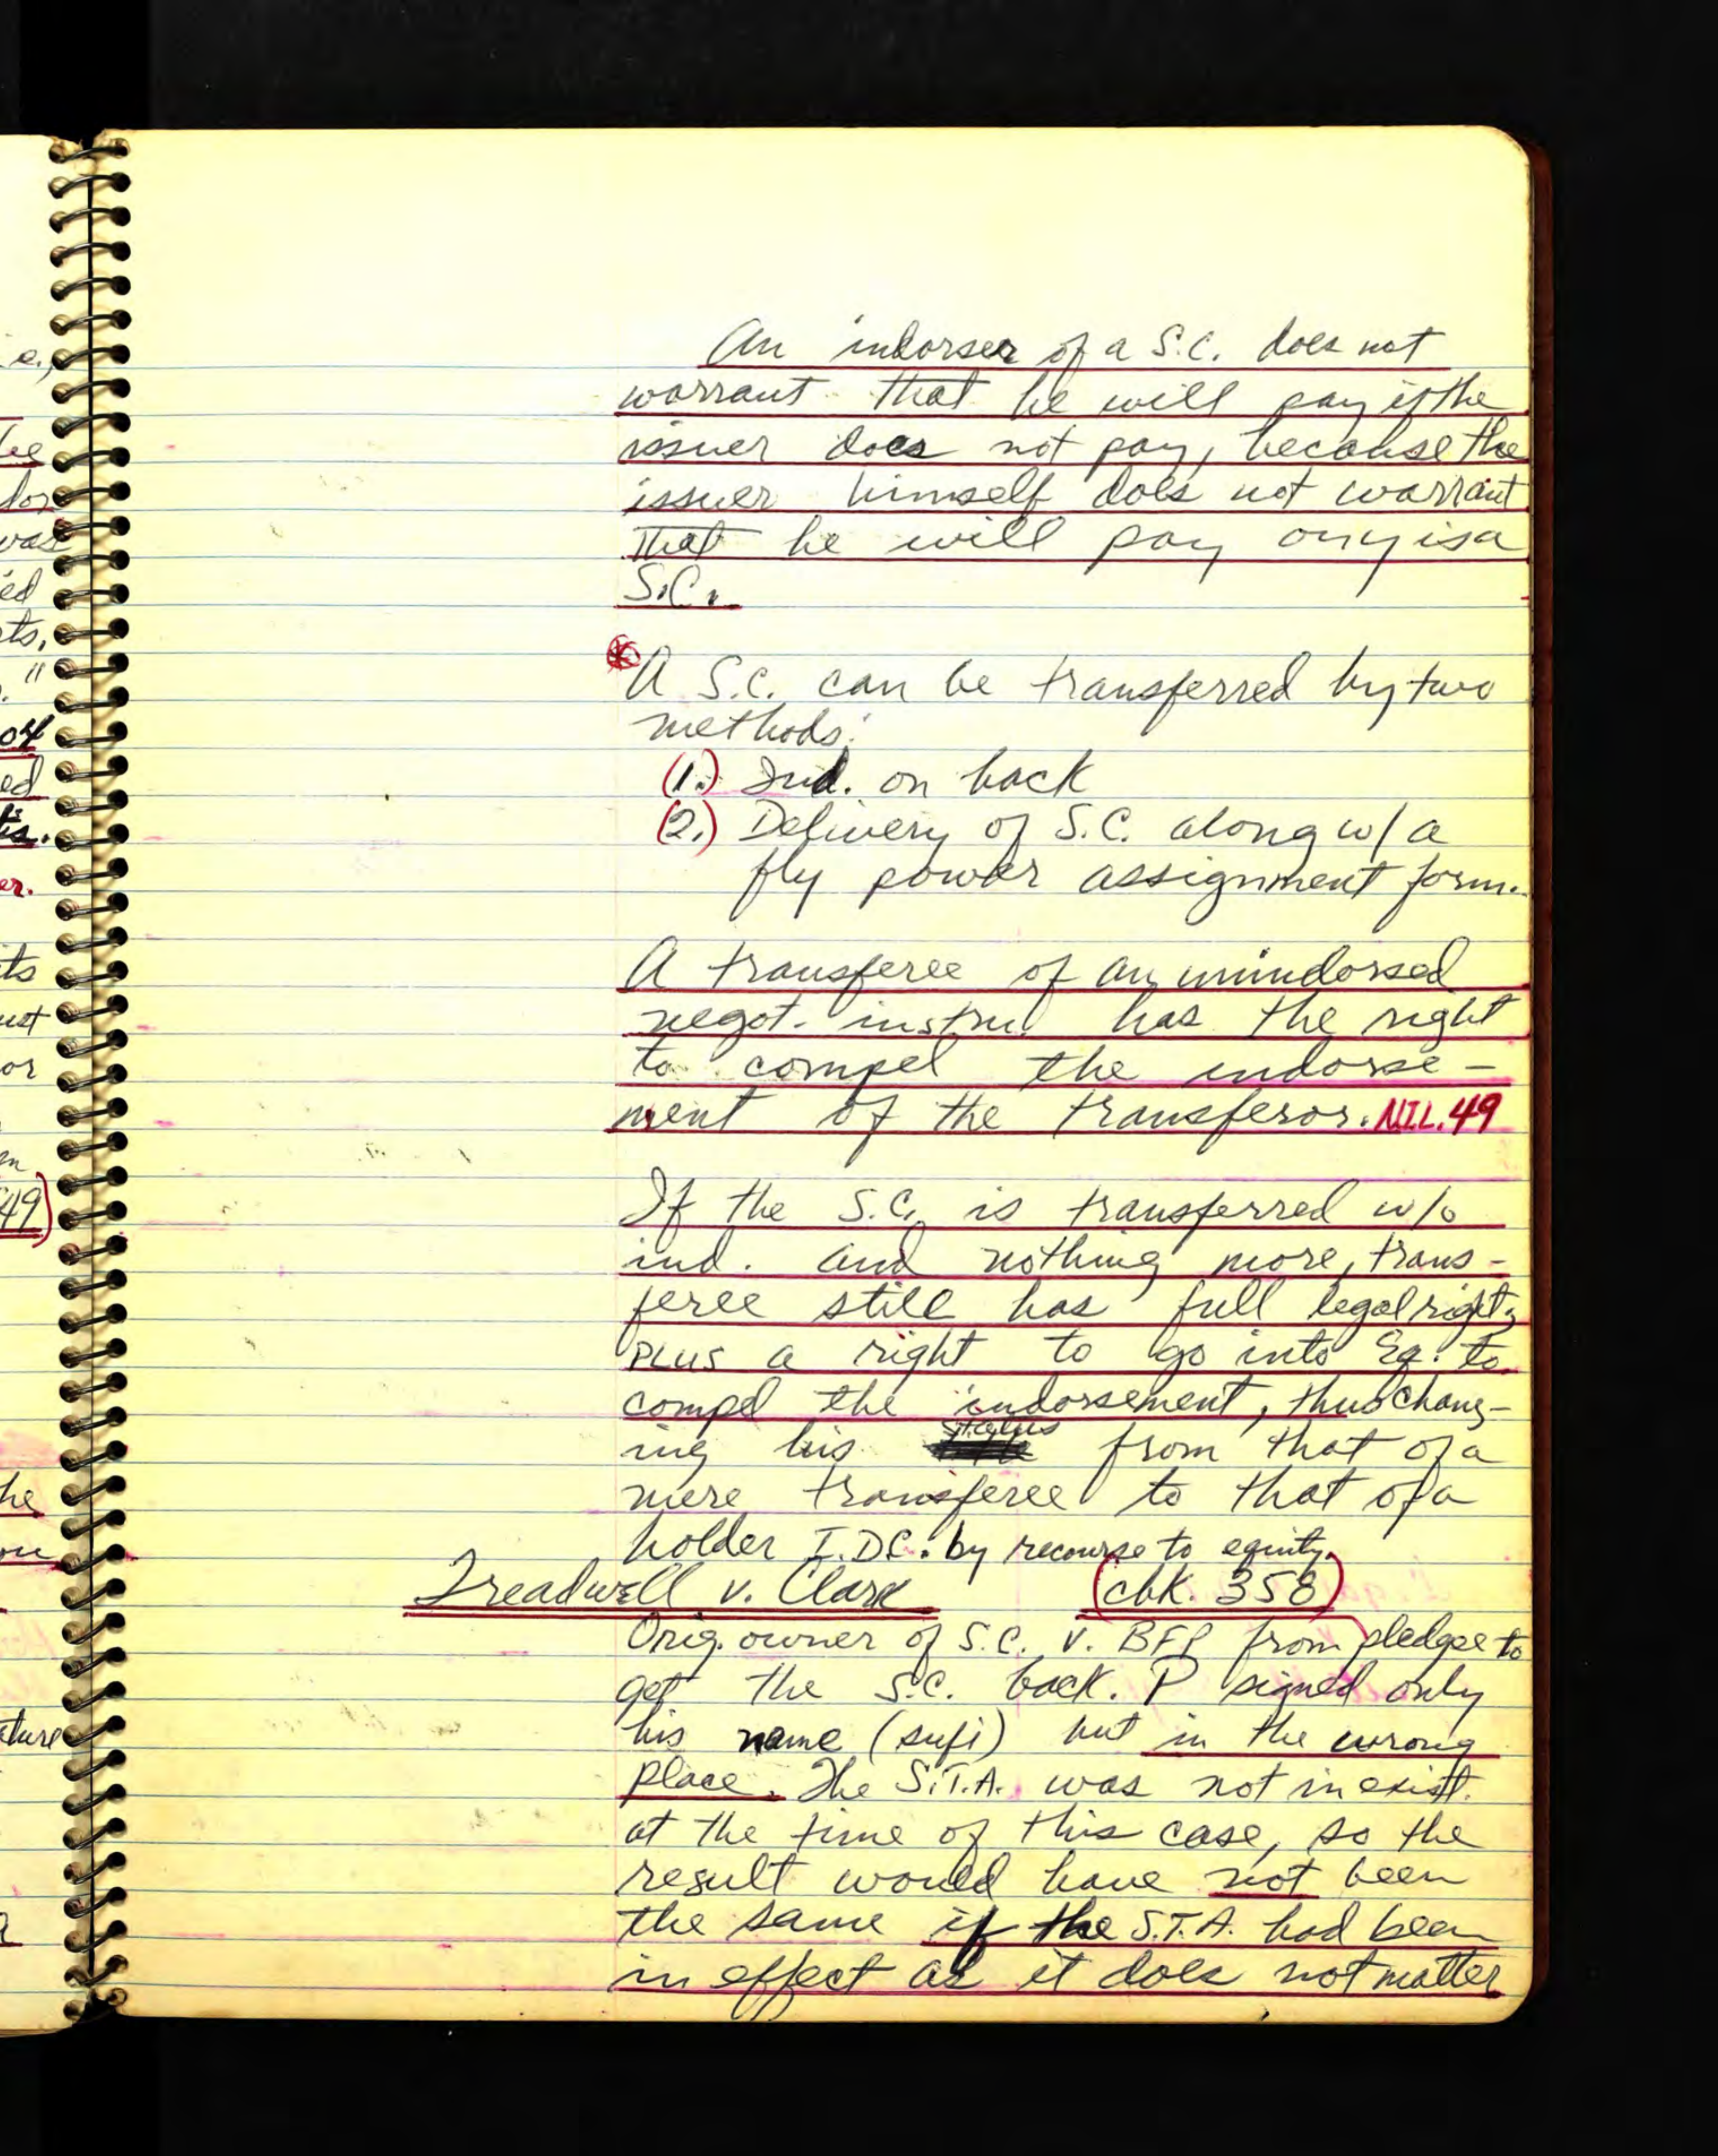 An indorser of a S.C. does not
warrant that he will pay if the
issuer does not pay, because the
issuer himself does not warrant
that he will pay on is a
S.C.
A S.C. can be transferred by two
methods:
(1.) Ind. on back
(2.) Delivery of S.C. along w/ a
fly power assignment form.
A transferee of an unindorsed
negot. instru. has the right
to compel the indorse-
ment of the transferor. N.I.L. 49
If the S.C. is transferred w/o
ind. and nothing more, trans-
feree still has full legal rights
PLUS a right to go into Eq. to
compel the indorsement, thus chang-
ing his status from that of a
mere transferee to that of a
holder I.D.C. by recourse to equity.
Treadwell v. Clark (cbk. 358)
Orig. owner of S.C. v. BFP from pledgee to
get the S.C. back. P signed only
his name (sufi) but in the wrong
place. The S.T.A. was not in exist.
at the time of this case, so the
result would have not been
the same if the S.T.A. had been
in effect as it does not matter